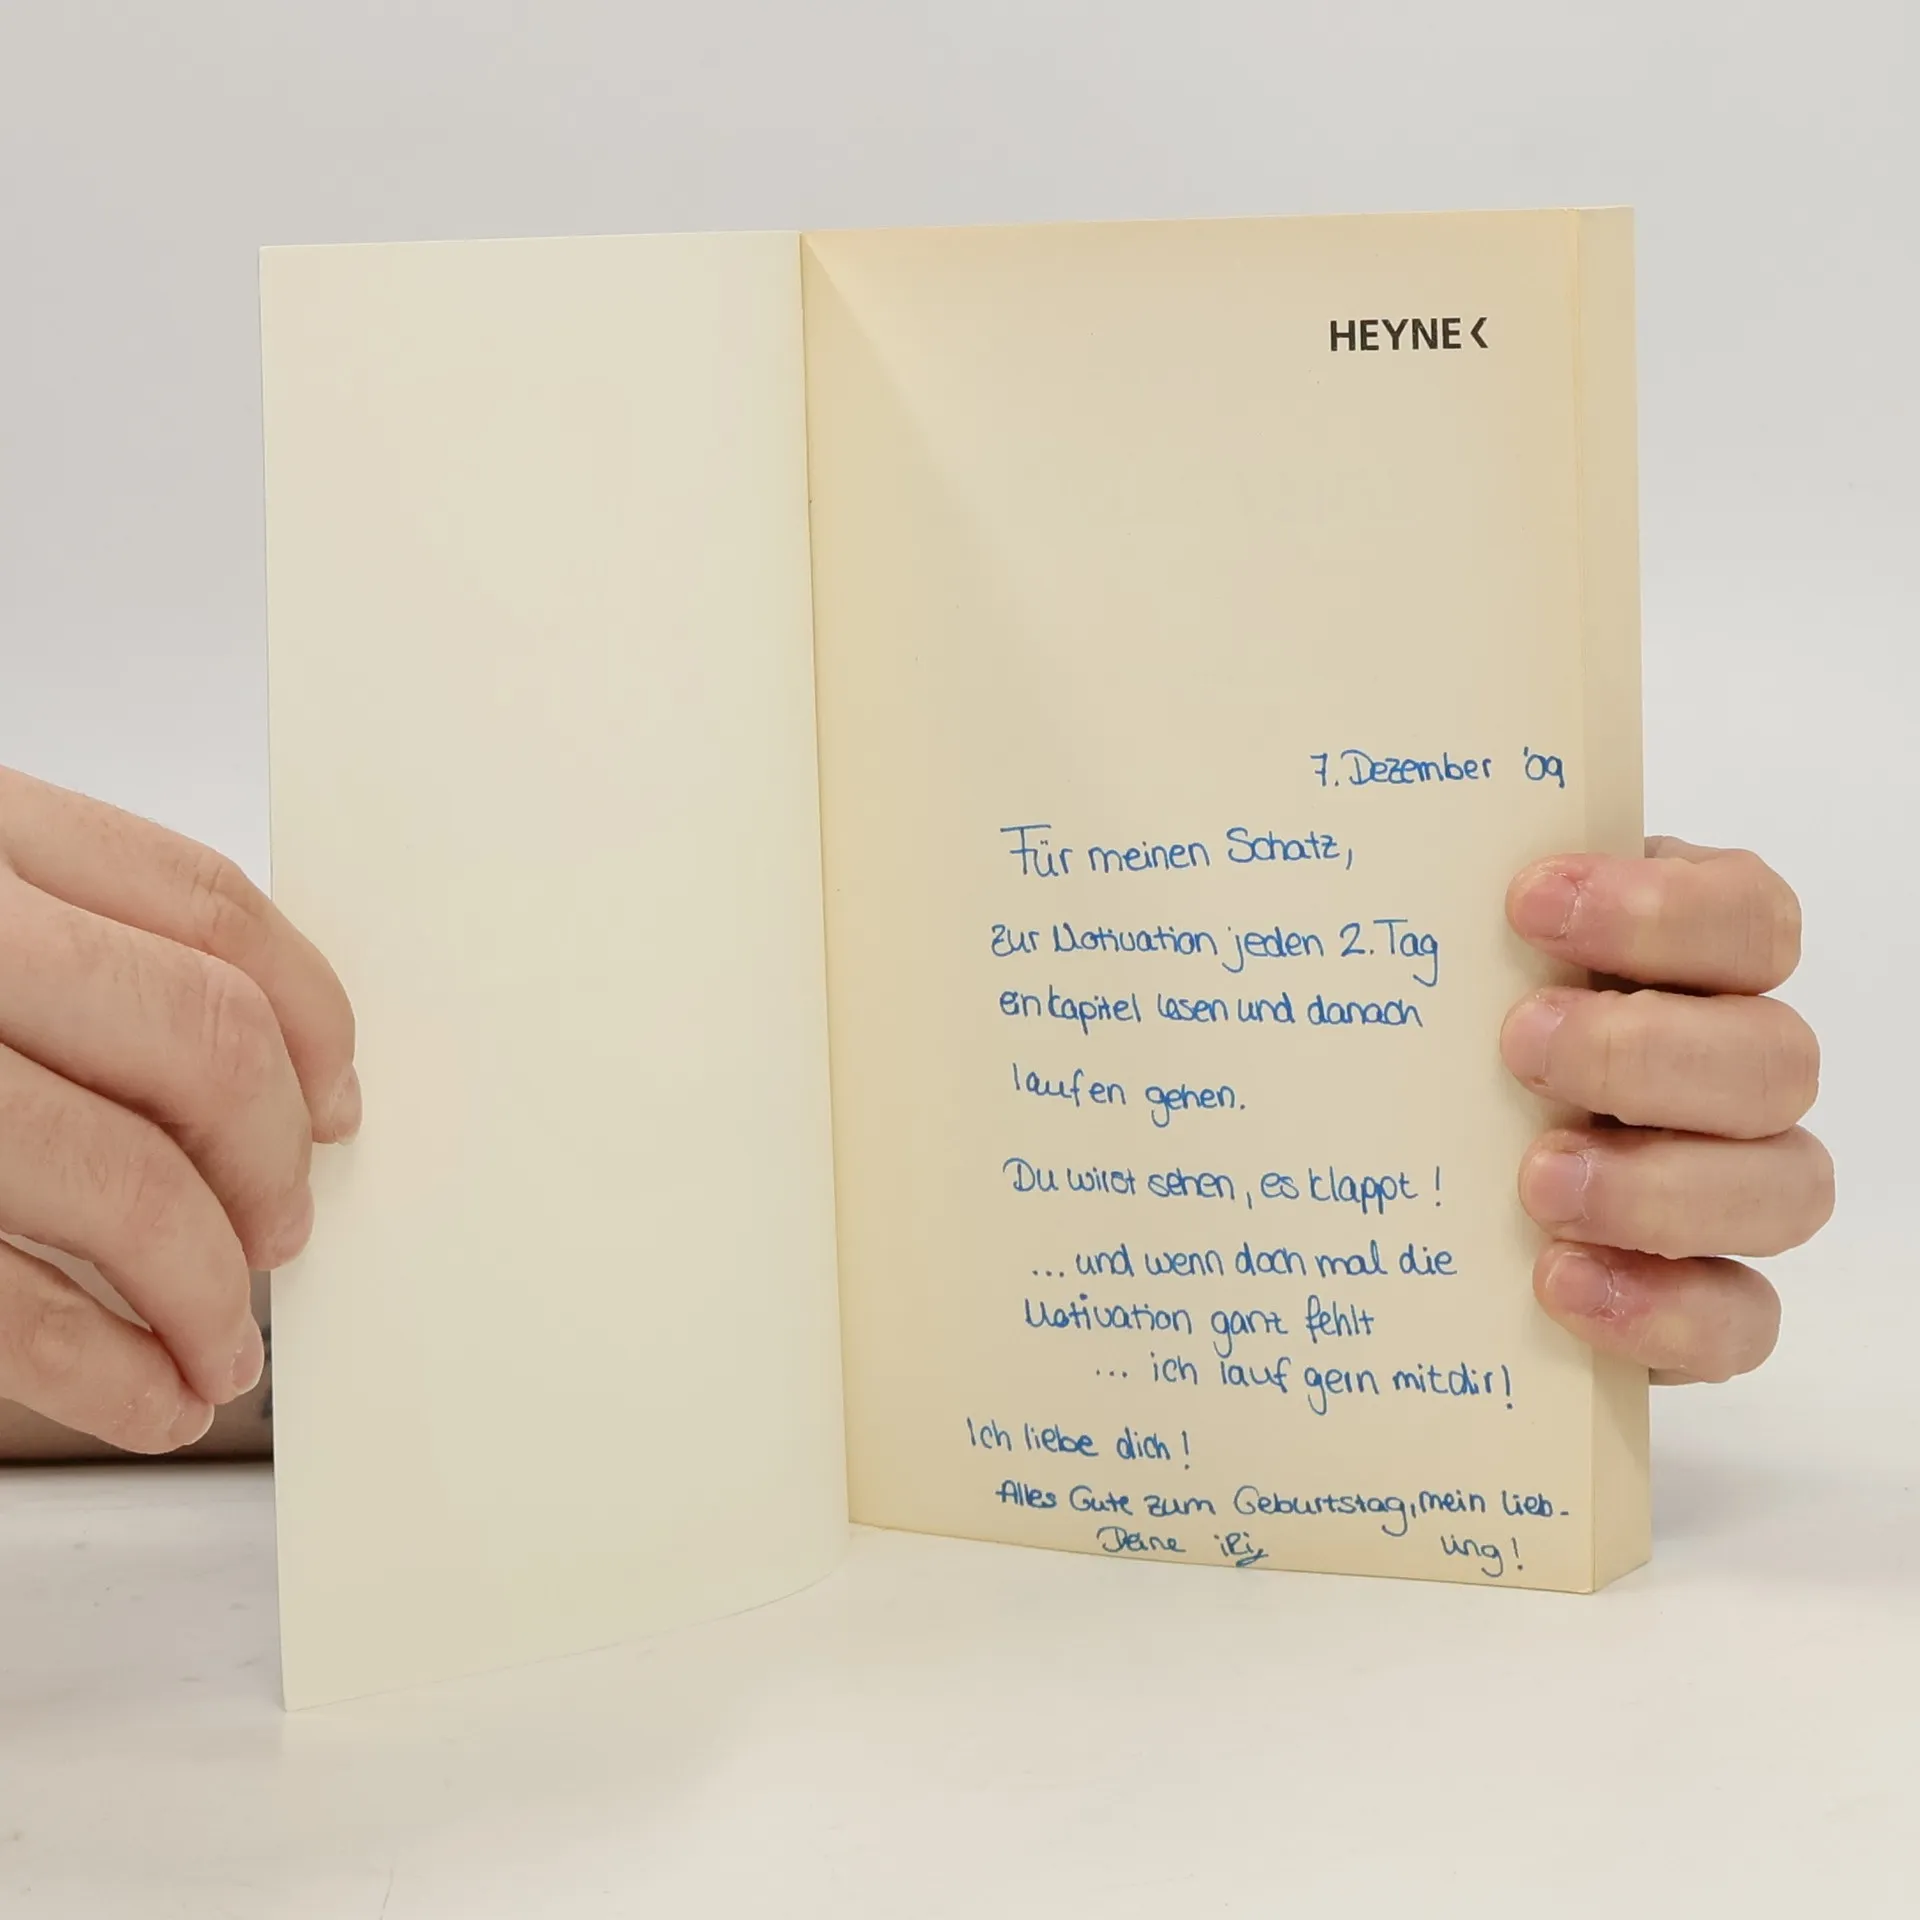 HEYNE <
7. Dezember '09
Für meinen Schatz,
zur Motivation jeden 2. Tag
ein Kapitel lesen und danach
laufen gehen.
Du wirst sehen, es klappt!
... und wenn doch mal die
Motivation ganz fehlt
... ich lauf gern mit dir!
Ich liebe dich!
Alles Gute zum Geburtstag, mein Lieb-
Deine ling!